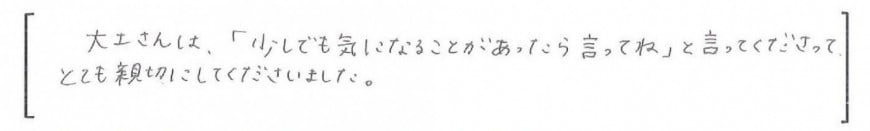 大工さんは、「少しでも気になることがあったら言ってね」と言ってくださって、
とても親切にしてくださいました。